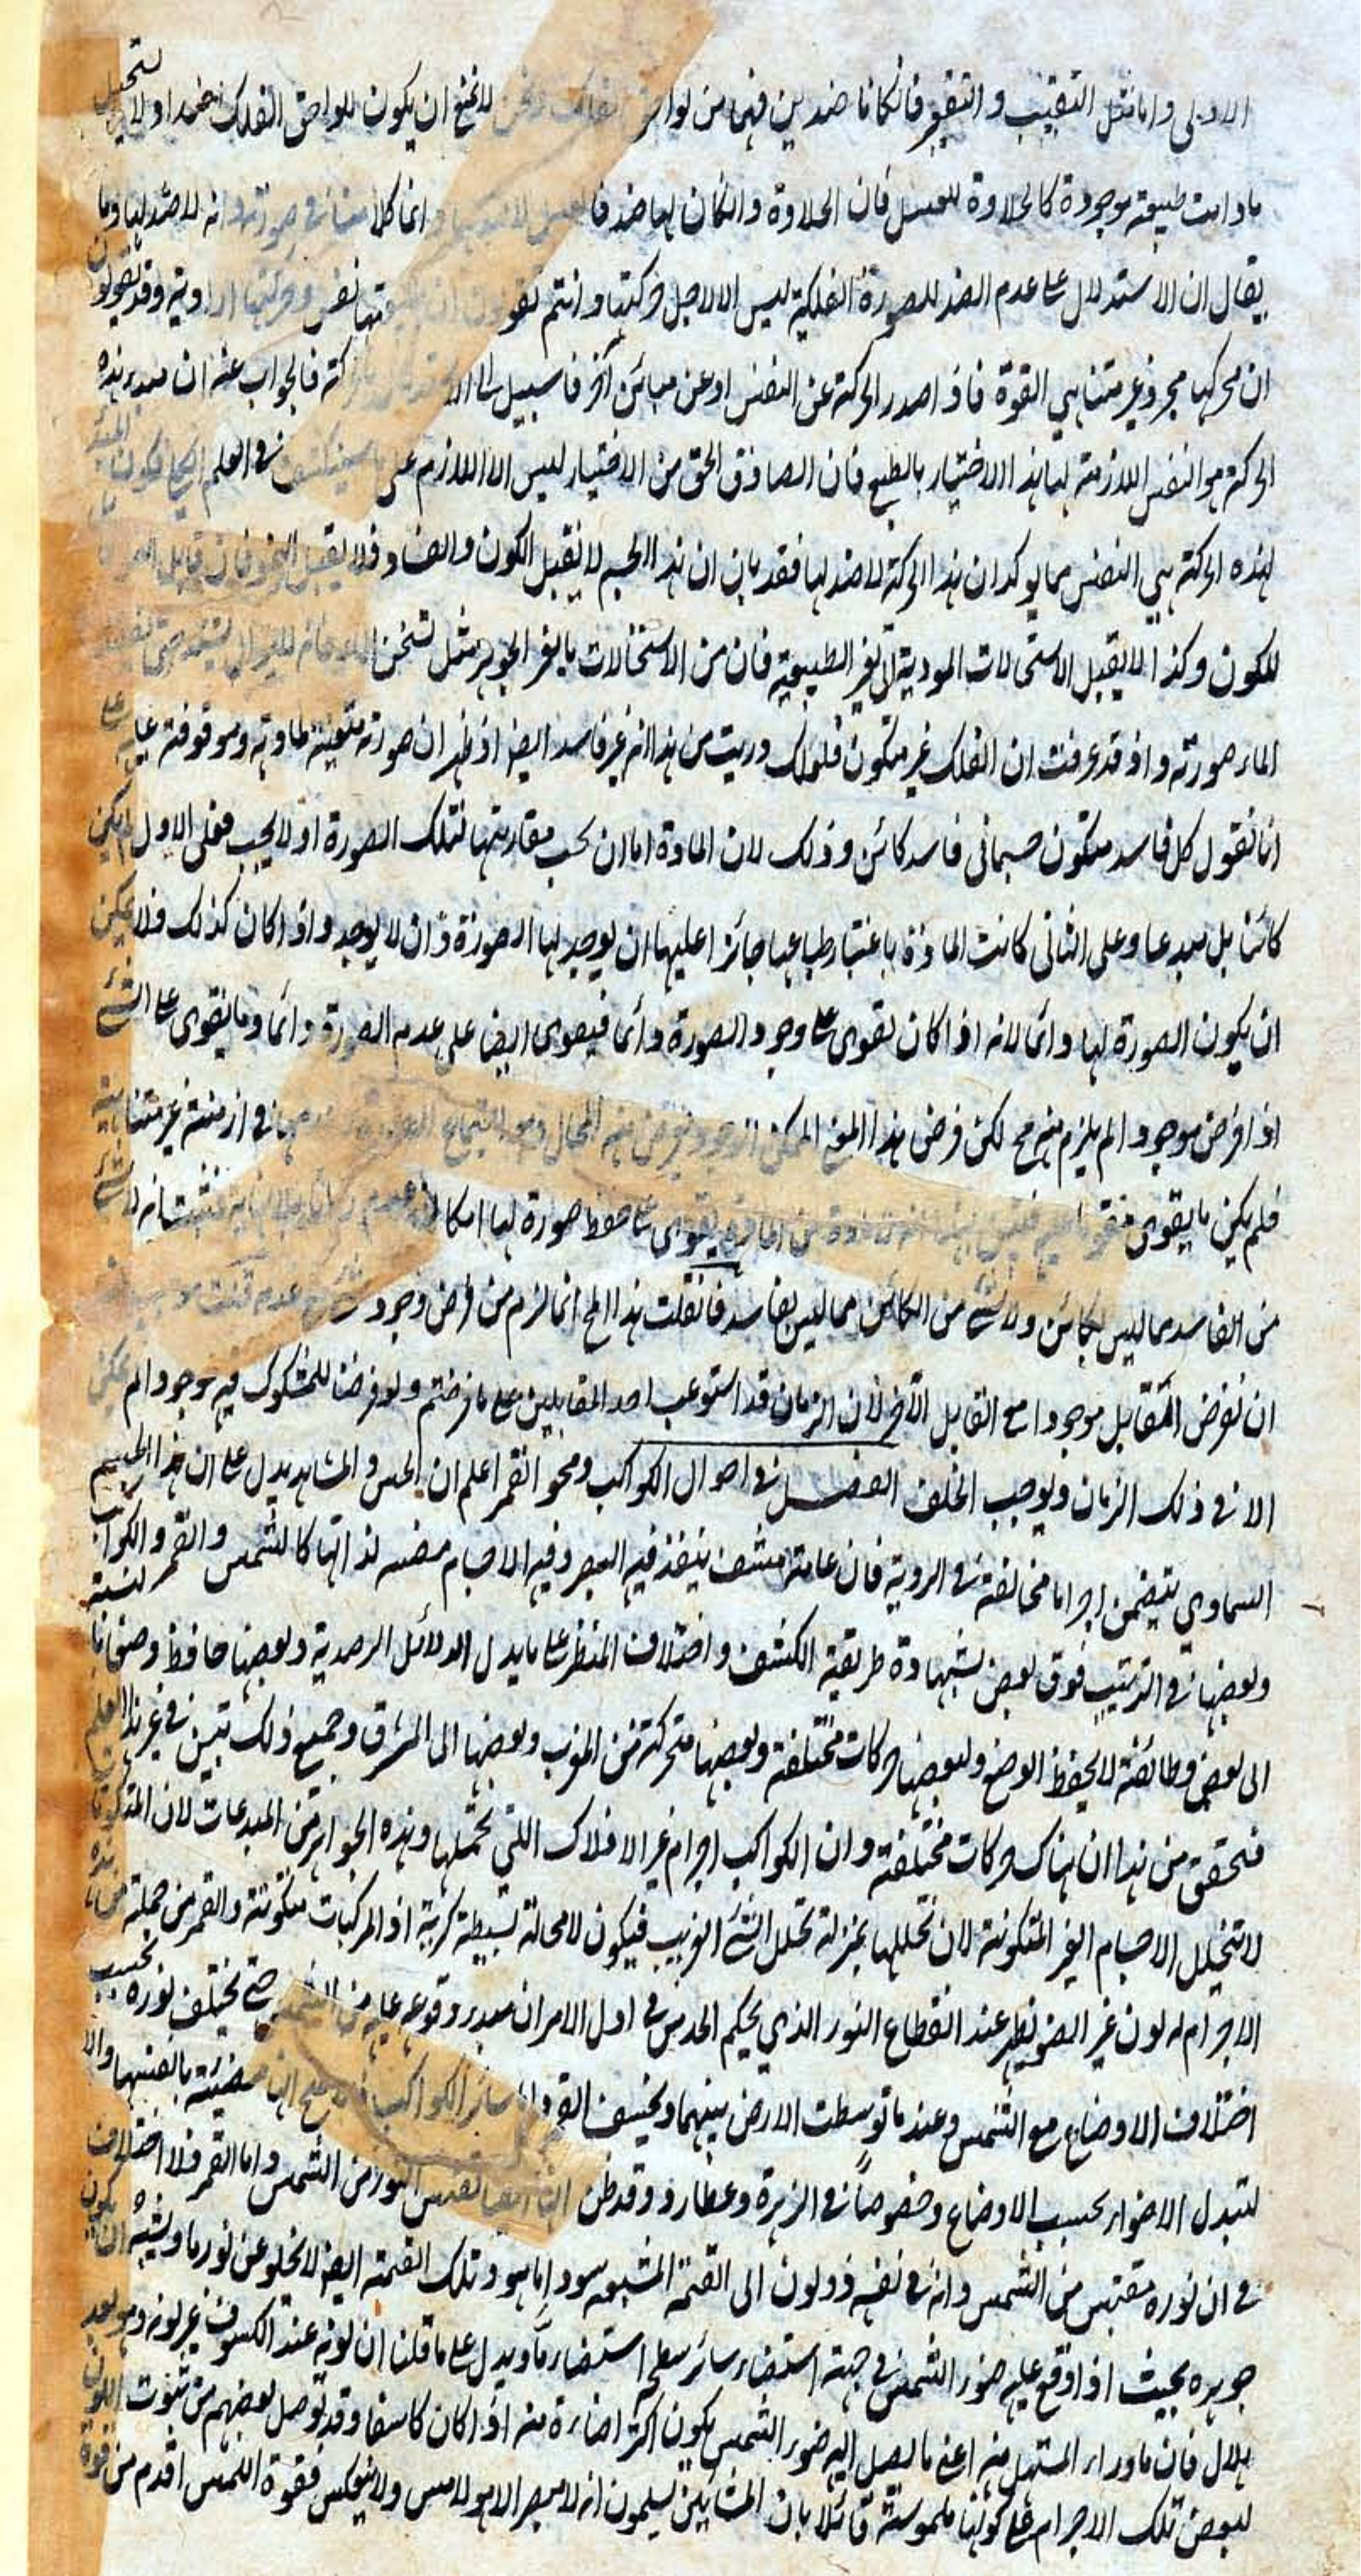 الاولى واما مثل التقبيب والتقعير فان كانا ضدين فهما من لواحق الفلك ونحن لا نمنع ان يكون للواحق الفلك ضدا ولا يستحيل
ما دامت طبيعته موجودة كالحلاوة للعسل فان الحلاوة وان كان لها ضد فالعسل لا ضد له وانما كلامنا في صورته وانه لا ضد لها وما
يقال ان الاستدلال على عدم الضد للصورة الفلكية ليس الا لاجل حركتها وانتم تقولون ان نفس وحركتها ارادية وقد تقولون
ان محركها مجرد غير متناهي القوة فاذا صدر الحركة عن النفس او عن مباين آخر فما سبيل الى فالجواب عنه ان مبدء هذه
الحركة هو النفس اللازمة لها هذا الاختيار بالطبع فان الصادق الحق من الاختيار ليس الا اللازم على ما سينكشف في العلم
لهذه الحركة هي النفس مما يوكد ان هذا الحركة لا ضد لها فقد بان ان هذا الجسم لا يقبل الكون والفساد فلا يقبل النمو فان قابل النمو
للكون وكذا لا يقبل الاستحالات المودية الى تغير الطبيعة فان من الاستحالات ما يغير الجوهر مثل تسخن الماء
الماء صورته واذ قد عرفت ان الفلك غير متكون فلعلك دريت من هذا انه غير فاسد ايضا اذ ظهر ان صورته متعينة لمادته وموقوفة عليه على
انا نقول كل فاسد متكون جسماني فاسد كائن وذلك لان المادة اما ان يجب مقارنتها لتلك الصورة او لا يجب فعلى الاول لم يكن
كائنا بل مبدعا وعلى الثاني كانت المادة باعتبار طباعها جائزا عليها ان يوجد لها الصورة وان لا يوجد واذا كان كذلك فلا يمكن
ان يكون الصورة لها دائما لانه اذا كان تقوى على وجود الصورة دائما فيقوى ايضا على عدم الصورة دائما وما يقوى على الشئ
اذا فرض موجودا لم يلزم منه مح لكن فرض هذا الممكن الوجود يعرض منه المحال وهو اجتماع في ازمنة غير متناهية
فلم يكن ما يقوى يقوى على حفظ صورة لها امكان فثبت انه لا شئ
من الفاسد مما ليس بكائن ولا شئ من الكائن مما ليس بفاسد فان قلت هذا المح انما لزم من فرض وجود شئ مع عدم
ان نفرض المقابل موجودا مع القابل الآخر لان الزمان قد استوعب احد المقابلين على ما فرضتم ولو فرضنا للمشكوك فيه موجودا لم يمكن
الا في ذلك الزمان ويوجب الخلف الفصل في احوال الكواكب ومحو القمر اعلم ان الحس والمشاهد يدل على ان هذا الجسم
السماوي يتضمن اجراما مخالفة في الروية فان عامته مشف ينفذ فيه البصر وفيه الاجسام مضيئة لذاتها كالشمس والقمر والكواكب
وبعضها في الترتيب فوق بعض بشهادة طريقة الكشف واختلاف المنظر على ما يدل الدلائل الرصدية وبعضها حافظ وضعا ما بنسبة
الى بعض وطائفة لا يحفظ الوضع ولبعضها حركات مختلفة وبعضها متحركة من المغرب وبعضها الى المشرق وجميع ذلك تبين في غير هذا العلم
فتحقق من هذا ان هناك حركات مختلفة وان الكواكب اجرام غير الافلاك اللتي تحملها وهذه الجواهر من المبدعات لان المتكونات
لا تتخلل الاجسام الغير المتكونة لان تخللها بمنزلة تخلل الشئ الغريب فيكون لا محالة بسيطة كرية اذ المركبات متكونة والقمر من جملة هذه
الاجرام له لون غير الضو يظهر عند انقطاع النور الذي يحكم الحدس في اول الامر ان مبدء وقوعه عليه من الشمس حتى يختلف نوره بحسب
اختلاف الاوضاع مع الشمس وعند ما توسطت الارض بينهما وينخسف القمر واما سائر الكواكب مضيئة بانفسها والا
لتبدل الاضواء بحسب الاوضاع وخصوصاً في الزهرة وعطارد وقد ظن النور من الشمس واما القمر فلا اختلاف
في ان نوره مقتبس من الشمس وانه في نفسه ذو لون الى القتمة المشبعة سوداما هو وتلك القتمة ايضا لا يخلو عن نور ما ويشبه ان يكون
جوهره بحيث اذا وقع عليه ضوء الشمس في جهة استضاء سائر سطحه استضاءة ما ويدل على ما قلنا ان لونه عند الكسوف غير لونه وهو بعد
هلال فان ما وراء المستهل منه اعني ما يصل اليه ضوء الشمس يكون اكثر اضاءة منه اذا كان كاسفا وقد توصل بعضهم من ثبوت اللون
لبعض تلك الاجرام على كونها ملموسة قائلا بان المشائين يسلمون انه لا مبصر الا هو لامس ولا ينعكس فقوة اللمس اقدم من قوة